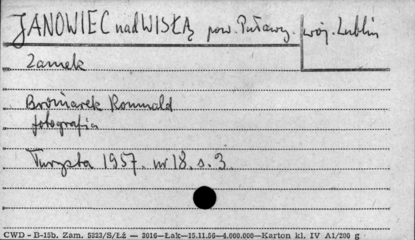 JANOWIEC nad WISŁĄ pow. Puławy. woj. Lublin
Zamek
Broniarek Romuald
fotografia
Turysta 1957. nr 18. s. 3.
CWD - B-15b. Zam. 5323/S/Łż — 3016—Łak—15.11.56—4.000.000—Karton kl. IV A1/200 g